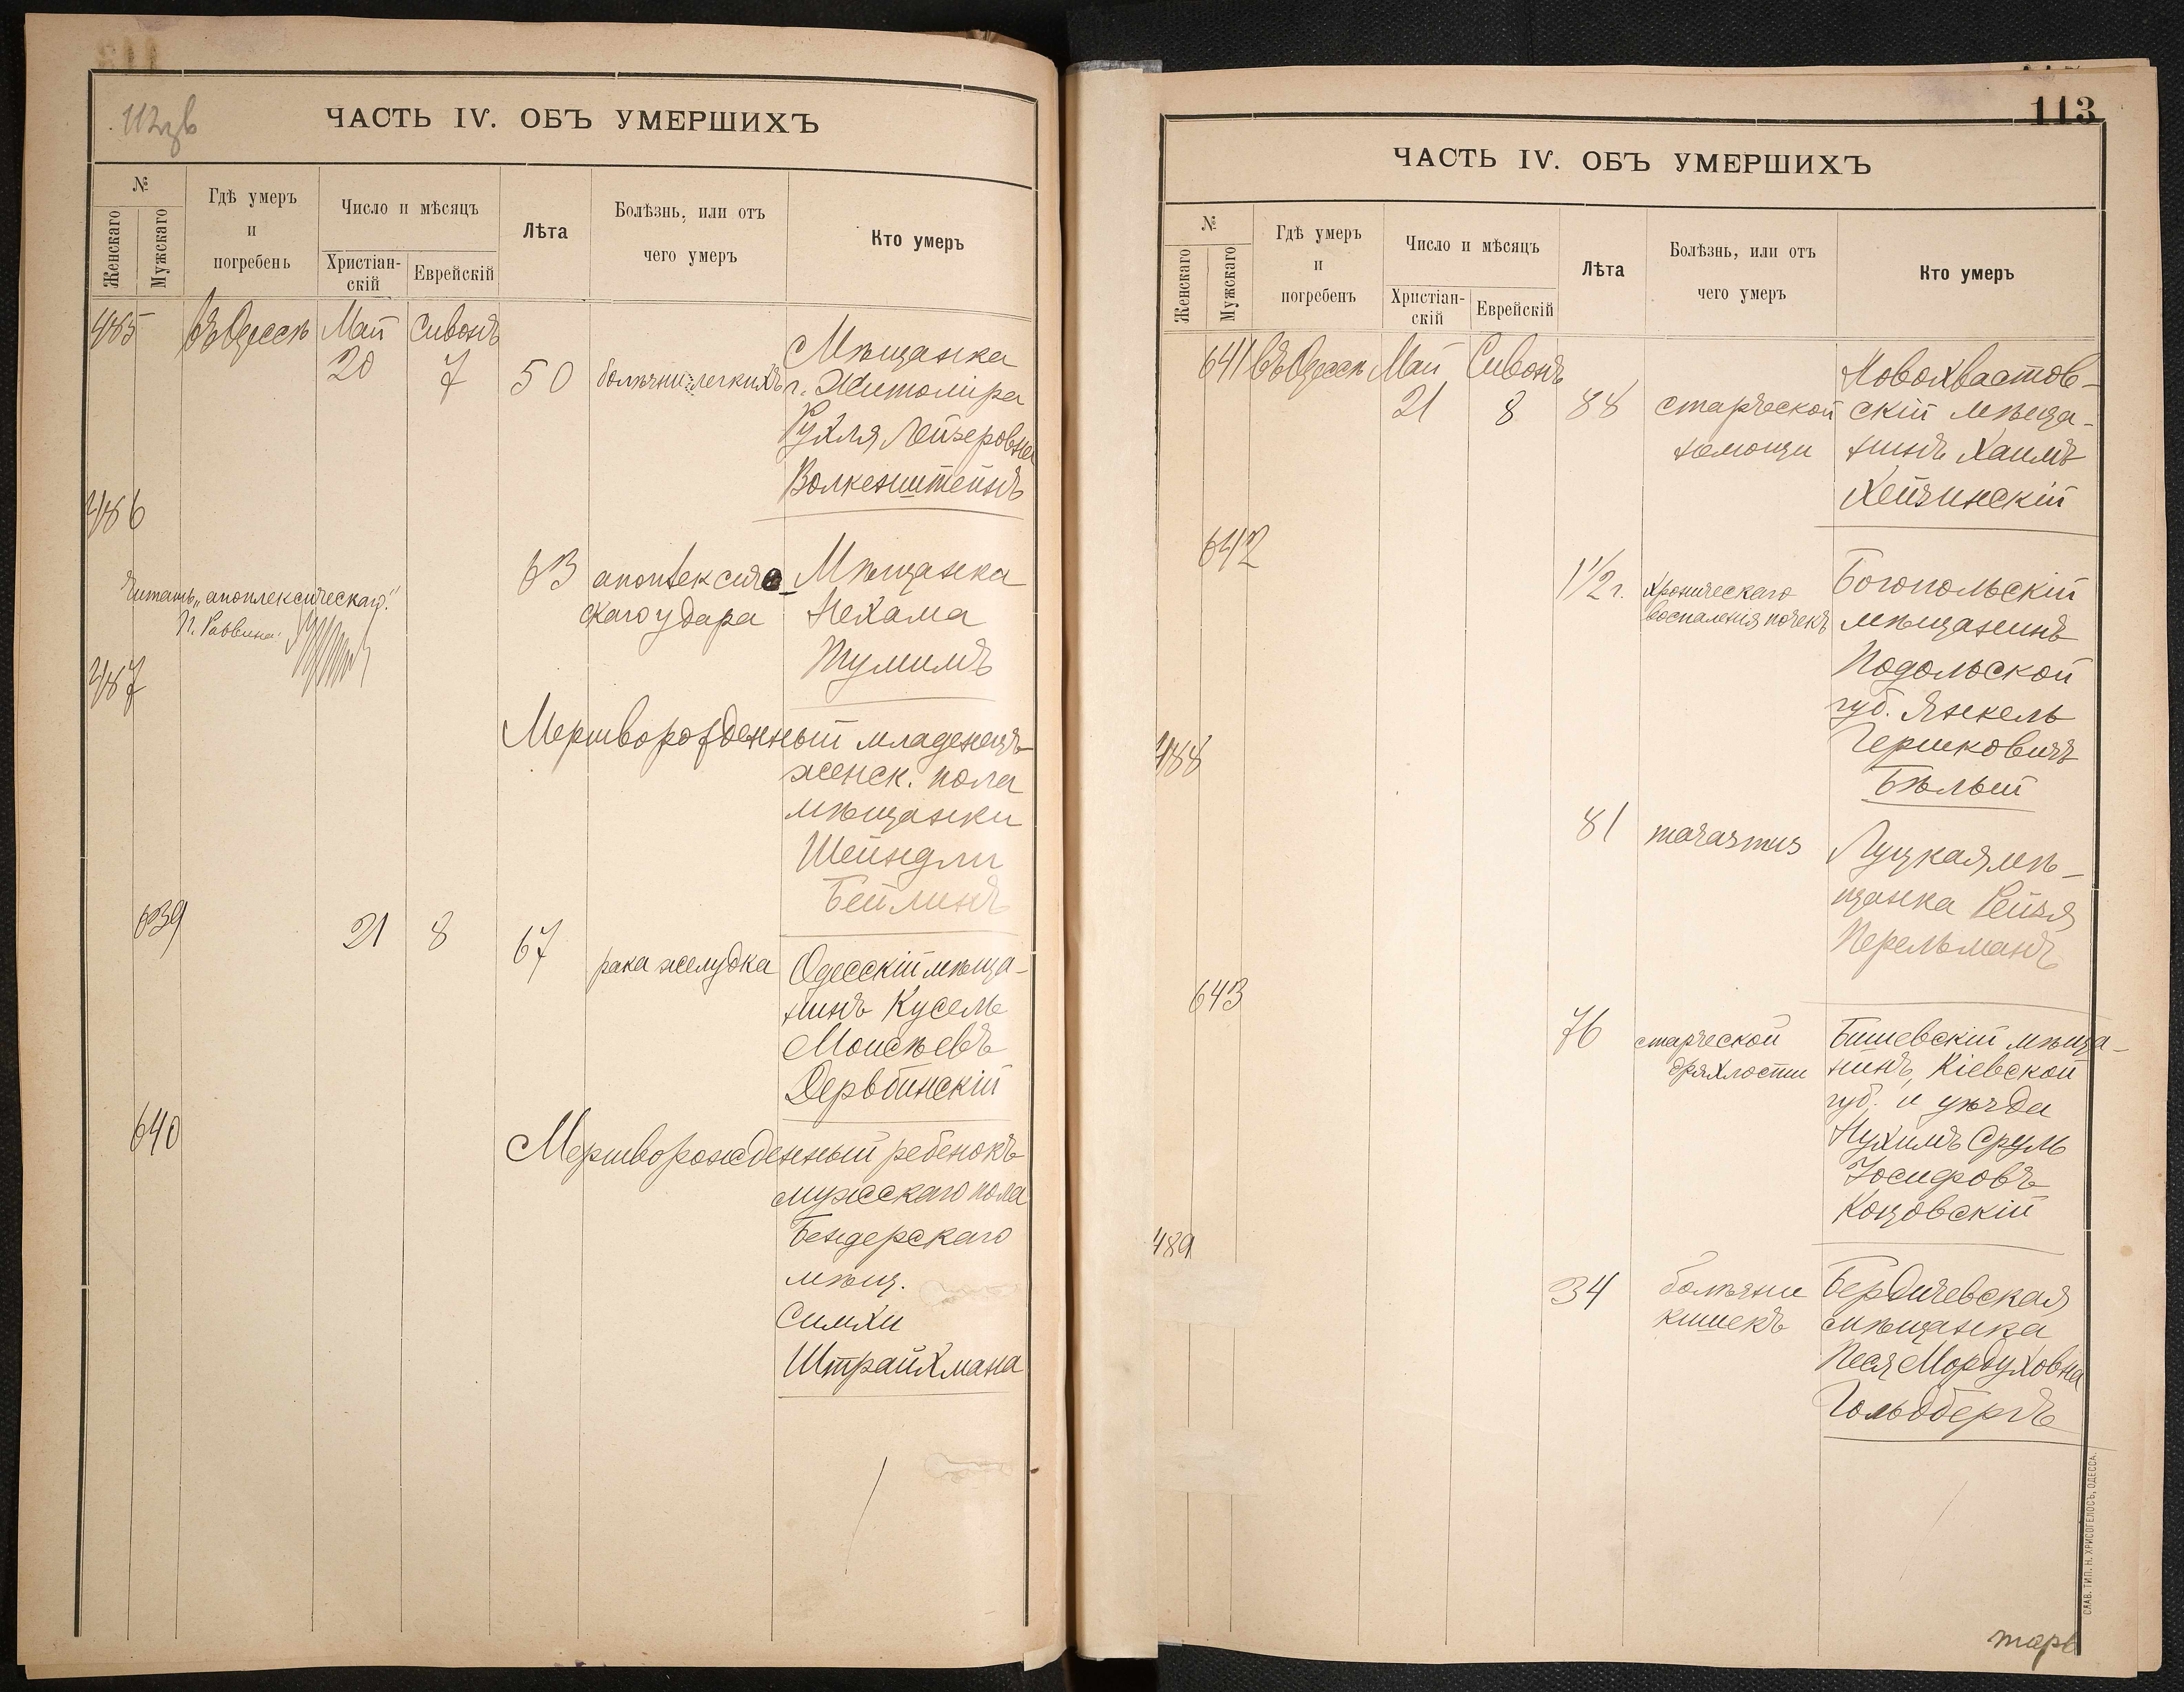 112зв
ЧАСТЬ IV. ОБЪ УМЕРШИХЪ
№
Женскаго
Мужскаго
Гдѣ умеръ
и
погребенъ
Число и мѣсяцъ
Христіан-
скій
Еврейскій
Лѣта
Болѣзнь, или отъ
чего умеръ
Кто умеръ
485 Въ Одессѣ Май Сивонъ
20 7 50 болѣзни легкихъ
Мѣщанка
г. Житоміра
Рухля Лейзеровна
Волкенштейнъ
486
63 апоплексиче-
скаго удара
Мѣщанка
Нехама
Тумимъ
Читать „апоплексическаго“
П. Раввина
487
Мертворожденный младенецъ
женск. пола
мѣщанки
Шейндли
Бейлинъ
639 21 8 67 рака желудка
Одесскій мѣща-
нинъ Кусель
Моисѣевъ
Дербинскій
640
Мертворожденный ребенокъ
мужескаго пола
Бендерскаго
мѣщ.
Симхи
Штрайхмана
113
ЧАСТЬ IV. ОБЪ УМЕРШИХЪ
№
Женскаго
Мужскаго
Гдѣ умеръ
и
погребенъ
Число и мѣсяцъ
Христіан-
скій
Еврейскій
Лѣта
Болѣзнь, или отъ
чего умеръ
Кто умеръ
641 Въ Одессѣ Май Сивонъ
21 8 88 старческой
немощи
Новохвастов-
скій мѣща-
нинъ Хаимъ
Хейзинскій
642
1½ г. хроническаго
воспаленія почекъ
Богопольскій
мѣщанинъ
Подольской
губ. Янкель
Гершковичъ
Бѣлый
488
81 marasmus
Луцкая мѣ-
щанка Рейзя
Перельманъ
643
76 старческой
дряхлости
Бишевскій мѣща-
нинъ, Кіевской
губ. и уѣзда
Нухимъ Сруль
Іосифовъ
Коцовскій
489
34 болѣзни
кишекъ
Бердичевская
мѣщанка
Песя Мордуховна
Гольдбергъ
СЛАВ. ТИП. Н. ХРИСОГЕЛОСЪ, ОДЕССА.